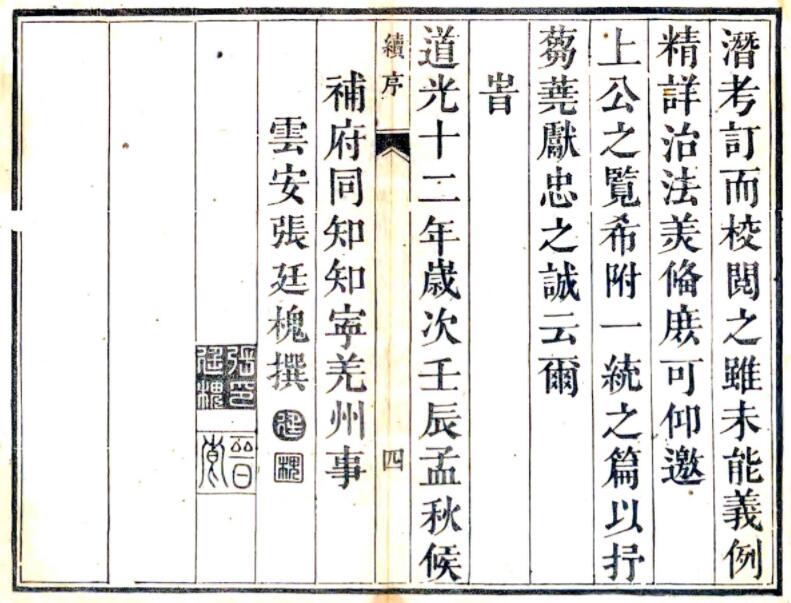 潛考訂而校閱之雖未能義例
精詳治法美俻庻可仰邀
上公之覽希附一統之篇以抒
蒭蕘獻忠之誠云爾
旹
道光十二年歲次壬辰孟秋候
續序
四
補府同知知寧羌州事
雲安張廷槐撰
廷
槐
張印廷槐